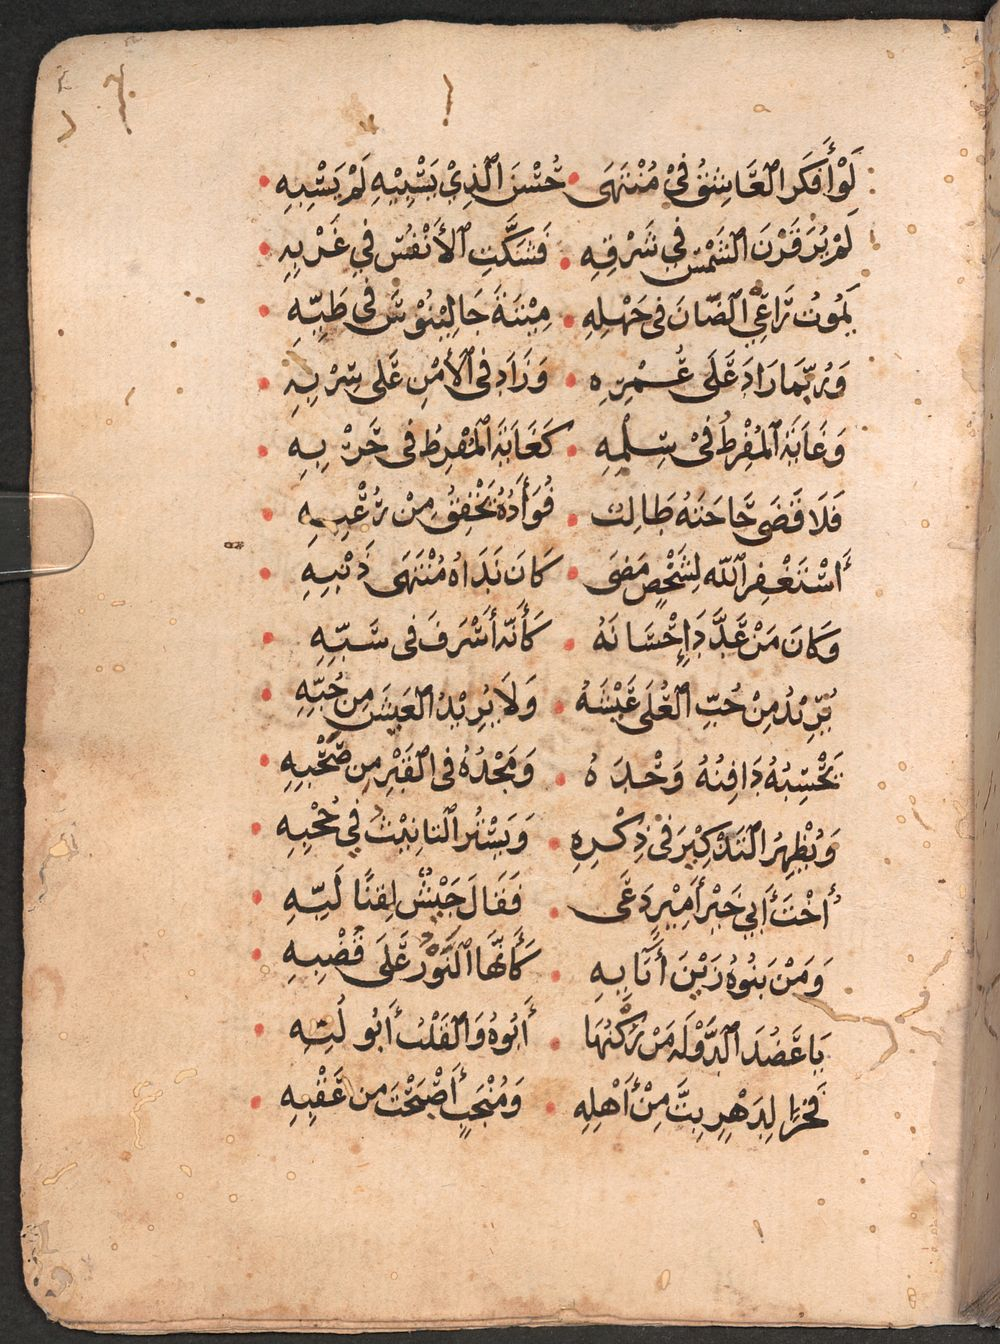 لَوْ أَفْكَرَ الْعَاشِقُ فِيْ مُنْتَهَى • حُسْنِ الَّذِيْ يَسْبِيْهِ لَمْ يَسْبِهِ •
لَمْ يُرَ قَرْنُ الشَّمْسِ فِي شَرْقِهِ • فَشَكَّتِ الأَنْفُسُ فِي غَرْبِهِ •
يَمُوْتُ رَاعِي الضَّانِ فِى جَهْلِهِ • مِيْتَةَ جَالِيْنُوْسَ فِى طِبِّهِ •
وَرُبَّمَا زَادَ عَلَى عُمْرِهِ • وَزَادَ فِى الأَمْنِ عَلَى سِرْبِهِ •
وَغَايَةُ الْمُفْرِطُ فِيْ سِلْمِهِ • كَغَايَةِ الْمُفْرِطِ فِى حَرْبِهِ •
فَلَا قَضَى حَاجَتَهُ طَالِبٌ • فُؤَادُهُ يَخْفِقُ مِنْ رُعْبِهِ •
أَسْتَغْفِرُ اللّٰه لِشَخْصٍ مَضَى • كَانَ نَدَاهُ مُنْتَهَى ذَنْبِهِ •
وَكَانَ مَنْ عَدَّدَ إِحْسَانَهُ • كَأَنَّهُ أَسْرَفَ فِى سَبِّهِ •
يُرِيْدُ مِنْ حُبِّ الْعُلَى عَيْشَهُ • وَلَا يُرِيْدُ الْعَيْشَ مِنْ حُبِّهِ •
يَحْسِبُهُ دَافِنُهُ وَحْدَهُ • وَمَجْدُهُ فِى الْقَبْرِ مِن صَحْبِهِ •
وَيُظْهِرُ التَذْكِيْرَ فِى ذِكْرِهِ • وَيَسْتُرُ التانِيْثَ فِي حُجْبِهِ •
أُخْتُ أَبِي خَيْرِ أَمِيْرٍ دَعَى • فَقَالَ جَيْشٌ لِقَنًا لَبِّهِ •
وَمَنْ بَنُوهُ زَيْنُ أَبَآئِهِ • كَأَنَّهَا النَّوْرُ عَلَى قُضْبِهِ •
يَا عَضُدَ الدَّوْلَةِ مَنْ رُكْنُهَا • أَبُوهُ وَالْقَلْبُ أَبُو لُبِّهِ •
فَخْرًا لِدَهْرٍ بِتَّ مِنْ أَهْلِهِ • وَمُنْجِبٍ أَصْبَحْتَ مِن عَقْبِهِ •